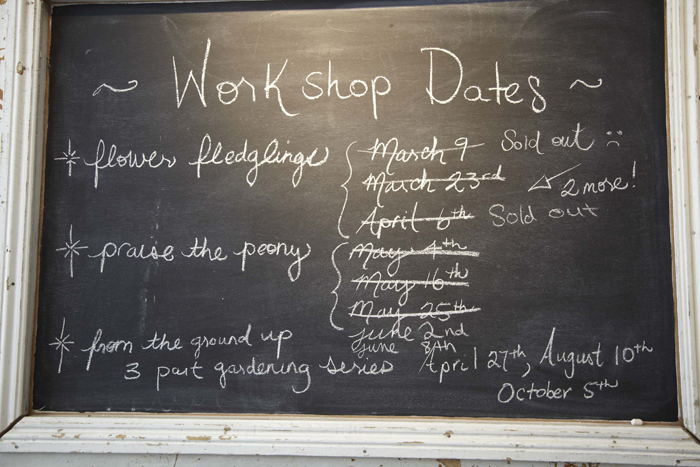 ~ Workshop Dates ~
flower fledglings March 9 Sold out :(
March 23rd 2 more!
April 6th Sold out
praise the peony May 4th
May 16th
May 25th
June 2nd
June 8th
from the ground up
3 part gardening series April 27th, August 10th
October 5th